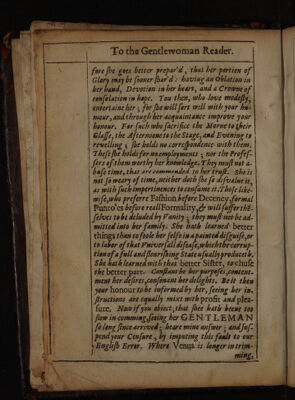 To the Gentlewoman Reader.
fore ſhe goes better prepar'd, that her portion of
Glory may be ſooner ſhar'd: having an Oblation in
her hand, Devotion in her heart, and a Crowne of
conſolation in hope. You then, who love modeſty,
entertaine her; for ſhe will ſort well with your hu-
mour, and through her acquaintance improve your
honour. For ſuch who ſacrifice the Morne to their
Glaſſe, the Afternoone to the Stage, and Evening to
revelling; ſhe holds no correſpondence with them.
Theſe ſhe holds for unemployments; nor the Profeſ-
ſors of them worthy her knowledge. They muſt not a-
buſe time, that are commended to her truſt. She is
not ſo weary of time, neither doth ſhe ſo diſvalue it,
as with ſuch impertinences to conſume it. Thoſe like-
wiſe, who preferre Faſhion before Decency, formal
Punto'es before reall Formality, & will ſuffer
ſelves to be deluded by Vanity; they muſt not be ad-
mitted into her family. She hath learned better
things than to foole her ſelfe in a painted diſguiſe, or
to labor of that Vniverſall diſeaſe, which the corrup-
tion of a full and flouriſhing State uſually produceth.
She hath learned with that better Siſter, to chuſe
the better part. Conſtant be her purpoſes, content-
ment her deſires, conſonant her delights. Be it then
your honour to be informed by her, ſeeing her in-
ſtructions are equally mixt with profit and plea-
ſure. Now if you object, that ſhee hath beene too
ſlow in comming, ſeeing her GENTLEMAN
ſo long ſince arrived; heare mine anſwer; and ſuſ-
pend your Cenſure, by imputing this fault to our
Engliſh Error. Where Venus is longer in trim-
ming,